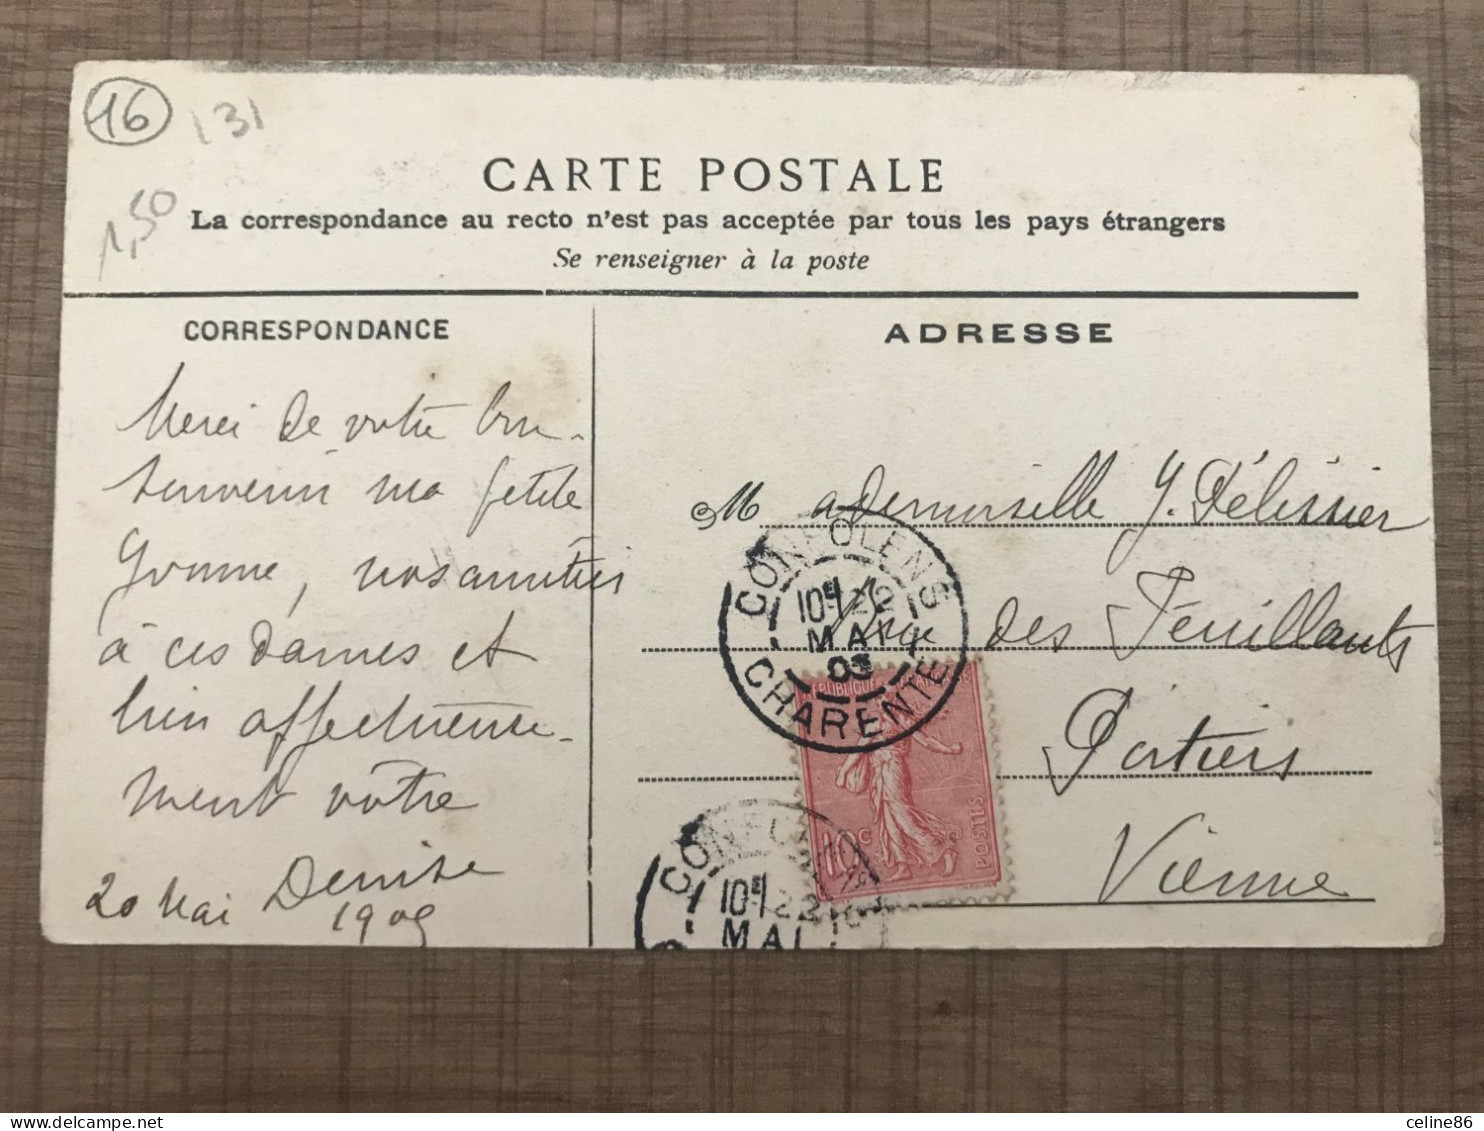 16
131
1,50
CARTE POSTALE
La correspondance au recto n'est pas acceptée par tous les pays étrangers
Se renseigner à la poste
CORRESPONDANCE
Merci de votre bon
souvenir ma petite
Yvonne, nos amitiés
à ces dames et
bien affectueuse-
ment vôtre
Denise
20 Mai 1905
ADRESSE
Mademoiselle Y. Pélissier
Rue des Feuillants
Poitiers
Vienne
CONFOLENS
10E 22
MAI
05
CHARENTE
RÉPUBLIQUE FRANÇAISE
10c
POSTES
CONFOLENS
10E 22
MAI
Delcampe.net
celine86